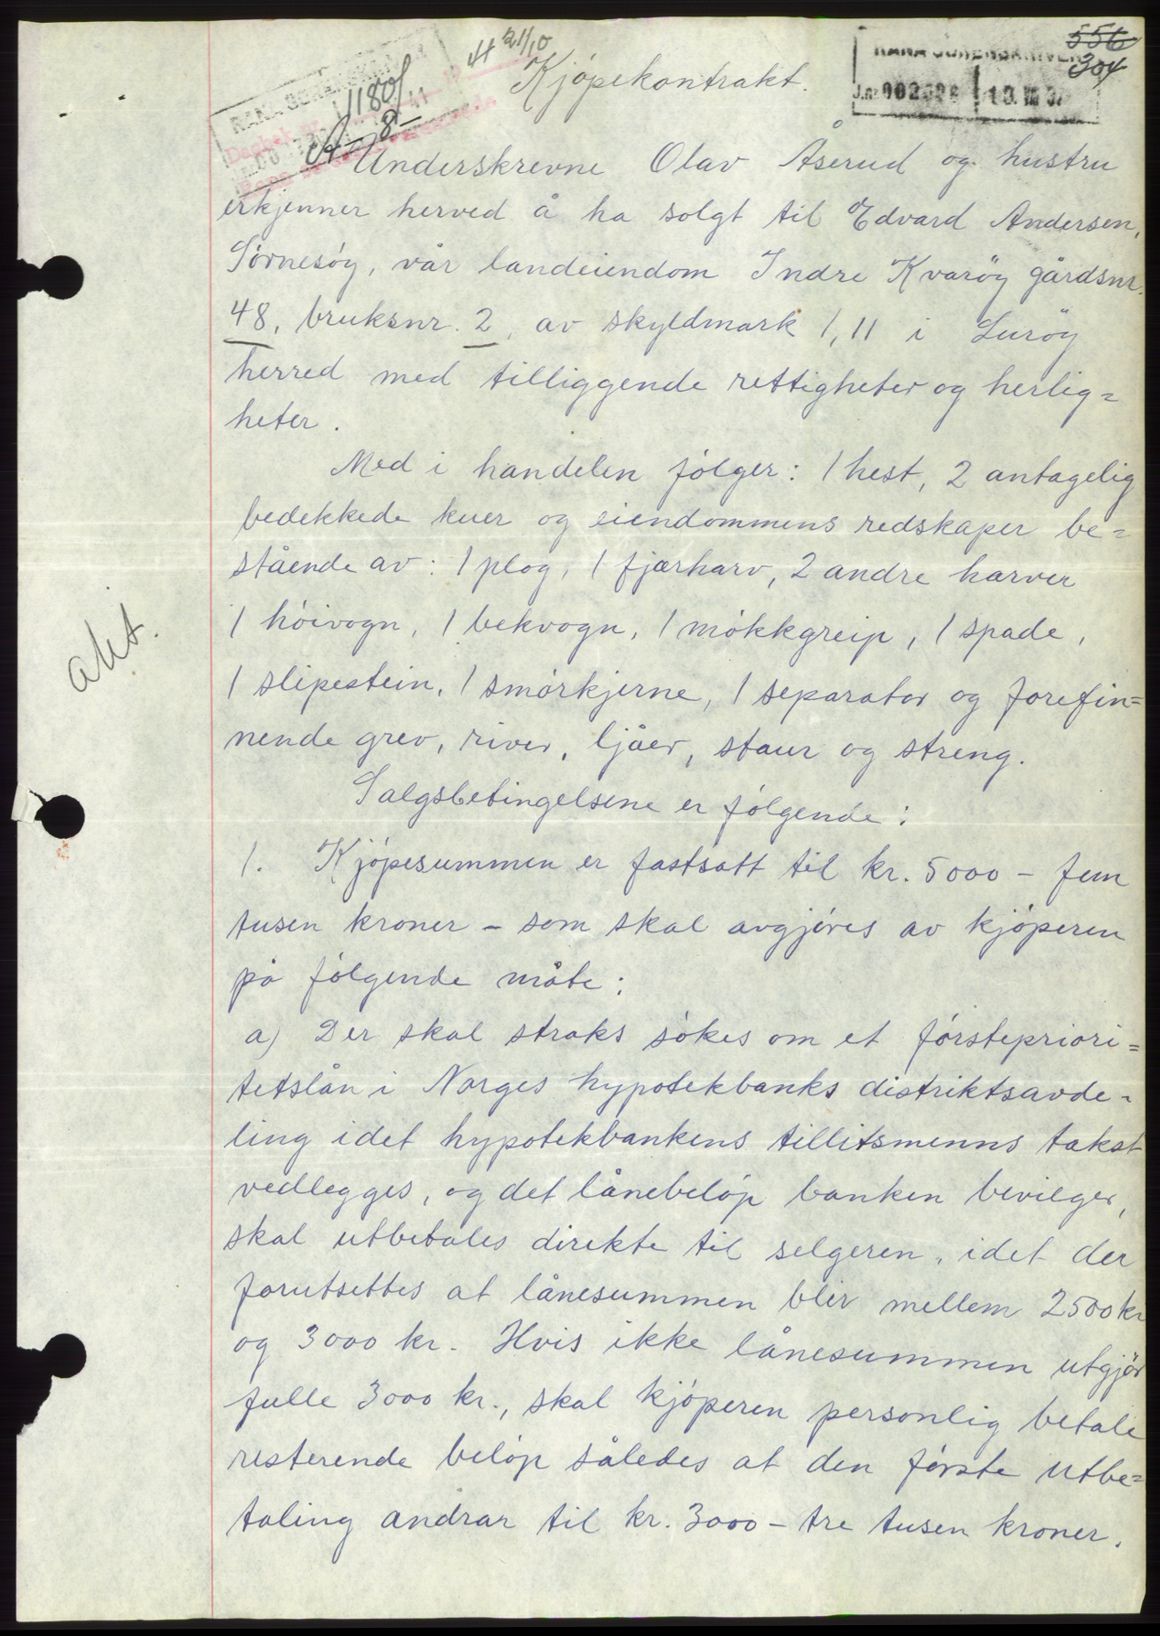 556
304
H 21/10
Kjøpekontrakt.
RANA SORENSKRIVERI
J.nr 002
1180/
A 8-
Underskrevne Olav Åserud og hustru
erkjenner herved å ha solgt til Edvard Andersen,
Sørnesøy, vår landeiendom Indre Kvarøy gårdsnr.
48, bruksnr. 2, av skyldmark 1,11 i Lurøy
herred med tilliggende rettigheter og herlig=
heter.
Med i handelen følger: 1 hest, 2 antagelig
bedekkede kuer og eiendommens redskaper be=
stående av: 1 plog, 1 fjærharv, 2 andre harver
1 høivogn, 1 bekvogn, 1 møkkgreip, 1 spade,
1 slipestein, 1 smørkjerne, 1 separator og forefin=
nende grev, river, ljåer, staur og streng.
Salgsbetingelsene er følgende:
1. Kjøpesummen er fastsatt til kr. 5000 - fem
tusen kroner - som skal avgjøres av kjøperen
på følgende måte:
a) Der skal straks søkes om et førstepriori=
tetslån i Norges hypotekbanks distriktsavde-
ling idet hypotekbankens tillitsmenns takst
vedlegges, og det lånebeløp banken bevilger,
skal utbetales direkte til selgeren, idet der
forutsettes at lånesummen blir mellem 2500 kr
og 3000 kr. Hvis ikke lånesummen utgjør
fulle 3000 kr., skal kjøperen personlig betale
resterende beløp således at den første utbe=
taling andrar til kr. 3000 - tre tusen kroner.
akt.